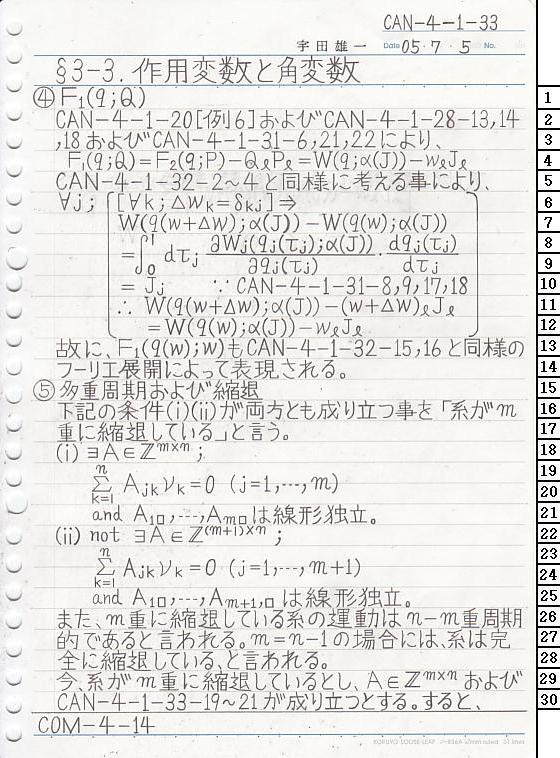 CAN-4-1-33
宇田雄一 Date 05・7・5 No.
§3-3. 作用変数と角変数
④ F₁(q;Q)
CAN-4-1-20[例6]およびCAN-4-1-28-13,14
,18およびCAN-4-1-31-6,21,22により、
F₁(q;Q)=F₂(q;P)−QℓPℓ=W(q;α(J))−wℓJℓ
CAN-4-1-32-2〜4と同様に考える事により、
∀j; [∀k; Δwₖ=δₖⱼ]⇒
W(q(w+Δw);α(J))−W(q(w);α(J))
=∫₀¹dτⱼ ∂Wⱼ(qⱼ(τⱼ);α(J))/∂qⱼ(τⱼ)・dqⱼ(τⱼ)/dτⱼ
= Jⱼ ∵ CAN-4-1-31-8,9,17,18
∴ W(q(w+Δw);α(J))−(w+Δw)ℓJℓ
=W(q(w);α(J))−wℓJℓ
故に、F₁(q(w);w)もCAN-4-1-32-15,16と同様の
フーリエ展開によって表現される。
⑤ 多重周期および縮退
下記の条件(i)(ii)が両方とも成り立つ事を「系がm
重に縮退している」と言う。
(i) ∃A∈ℤ^{m×n};
∑_{k=1}^{n} Aⱼₖνₖ=0 (j=1,---,m)
and A₁□,---,Aₘ□は線形独立。
(ii) not ∃A∈ℤ^{(m+1)×n};
∑_{k=1}^{n} Aⱼₖνₖ=0 (j=1,---,m+1)
and A₁□,---,Aₘ₊₁,□は線形独立。
また、m重に縮退している系の運動はn−m重周期
的であると言われる。m=n−1の場合には、系は完
全に縮退している、と言われる。
今、系がm重に縮退しているとし、A∈ℤ^{m×n}および
CAN-4-1-33-19〜21が成り立つとする。すると、
COM-4-14
KOKUYO LOOSE-LEAF ノ-836A 7mm ruled 31 lines
1
2
3
4
5
6
7
8
9
10
11
12
13
14
15
16
17
18
19
20
21
22
23
24
25
26
27
28
29
30